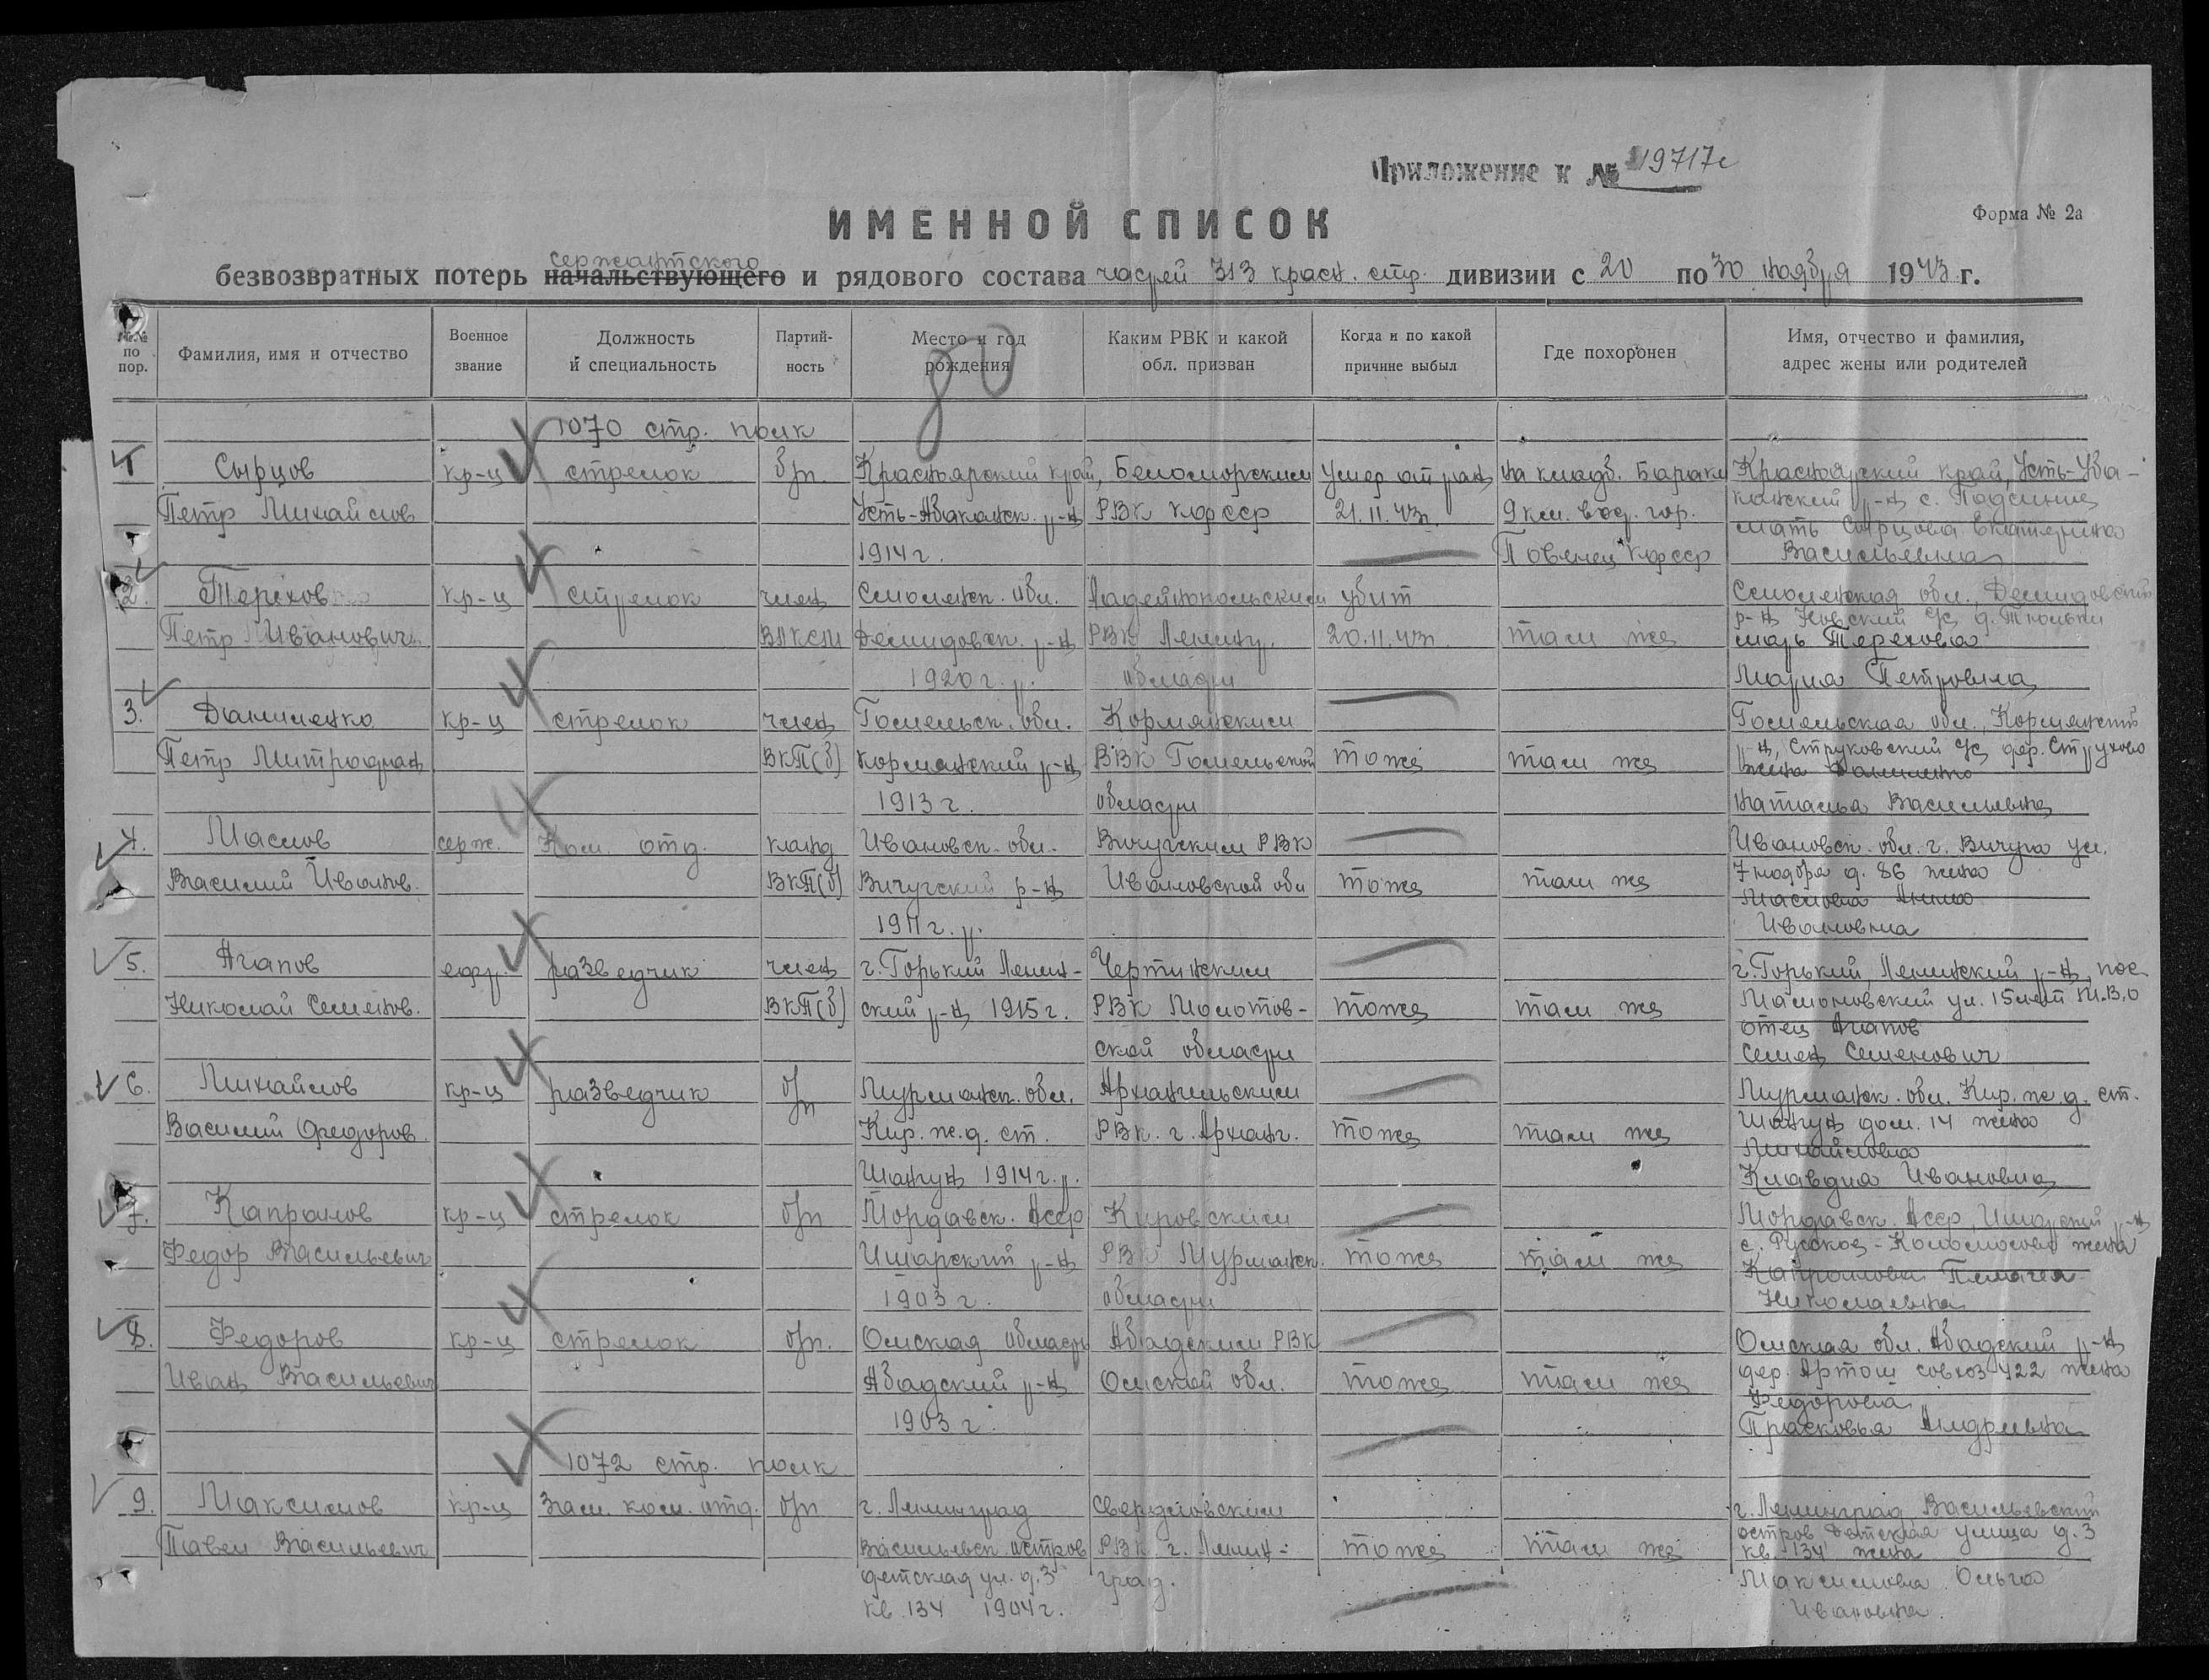 Приложение к № 19717с
ИМЕННОЙ СПИСОК
Форма № 2а
сержантского
безвозвратных потерь начальствующего и рядового состава частей 313 красн. стр. дивизии с 20 по 30 ноября 1943 г.
№№ по пор.
Фамилия, имя и отчество
Военное звание
Должность и специальность
Партийность
Место и год рождения
Каким РВК и какой обл. призван
Когда и по какой причине выбыл
Где похоронен
Имя, отчество и фамилия, адрес жены или родителей
80
1070 стр. полк
1 Сырцов кр-ц стрелок б/п. Красноярский край, Беломорским умер от ран на кладб. Бараки Красноярский край, Усть-Аба-
Петр Михайлов Усть-Абаканск. р-н РВК КФССР 21.11.43г. 9 км. вод. гор. канский р-н с. Подсинее
мать Сырцова Екатерина
1914 г. Повенец КФССР Васильевна
2. Терехов кр-ц стрелок член Смоленск. обл. Лодейнопольским убит Смоленская обл., Демидовский
Петр Иванович ВЛКСМ Демидовск. р-н РВК Ленингр. 20.11.43г. там же р-н с/с д.
мать Терехова
1920 г. р. области Мария Петровна
3. Даниленко кр-ц стрелок член Гомельск. обл. Кормянским Гомельская обл., Кормянский
Петр Митрофан. ВКП(б) Кормянский р-н РВК Гомельской тоже там же р-н, Струковский с/с дер. Струково
жена Даниленко
1913 г. области Наталья Васильевна
4. Маслов серж. Ком. отд. канд Ивановск. обл. Вичугским РВК Ивановск. обл. г. Вичуга ул.
Василий Иванов. ВКП(б) Вичугский р-н Ивановской обл тоже там же 7 ноября д. 86 жена
Маслова Анна
1911 г. р. Ивановна
5. Агапов ефр. разведчик член г. Горький Ленин- Чертинским г. Горький, Ленинский р-н, пос.
Николай Семенов. ВКП(б) ский р-н 1915 г. РВК Молотов- тоже там же ул. 15 лет
отец Агапов
ской области Семен Семенович
6. Михайлов кр-ц разведчик б/п Мурманск. обл. Архангельским Мурманск. обл. Кир. ж.д. ст.
Василий Федоров. Кир. ж.д. ст. РВК. г. Арханг. тоже там же Шонгуй дом. 14 жена
Михайлова
Шонгуй 1914 г. р. Клавдия Ивановна
7. Капралов кр-ц стрелок б/п Мордавск. АССР Кировским Мордавск. АССР, Инсарский р-н
Федор Васильевич Инсарский р-н РВК Мурманск. тоже там же с. Русское- жена
Капралова Пелагея
1903 г. области Николаевна
8. Федоров кр-ц стрелок б/п. Омская область Абадским РВК Омская обл. Абадский р-н
Иван Васильевич Абадский р-н Омской обл. тоже там же дер. совхоз 422 жена
Федорова
1903 г. Прасковья Андреевна
1072 стр. полк
9. Максимов кр-ц Зам. ком. отд. б/п г. Ленинград Свердловским г. Ленинград Васильевский
Павел Васильевич Васильевск. остров РВК г. Ленин- тоже там же остров Детская улица д. 3
кв. 134 жена
детская ул. д. 3 град. Максимова Ольга
кв. 134 1904 г. Ивановна.